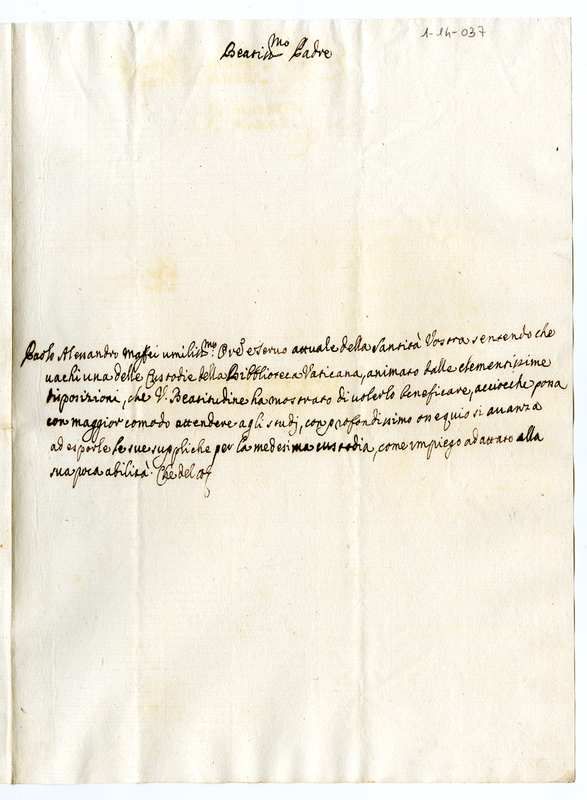 1-14-037
Beatiss.mo Padre
Paolo Alessandro Maffei umiliss.mo Ore e servo attuale della Santità Vostra sentendo che
vachi una delle Custodie della Bibblioteca Vaticana, animato dalle clementissime
disposizioni, che V. Beatitudine ha mostrato di volerlo beneficare, accioche possa
con maggior comodo attendere agli studj, con profondissimo ossequio si avanza
ad esporle le sue suppliche per la medesima custodia, come impiego adattato alla
sua poca abilità. Che del